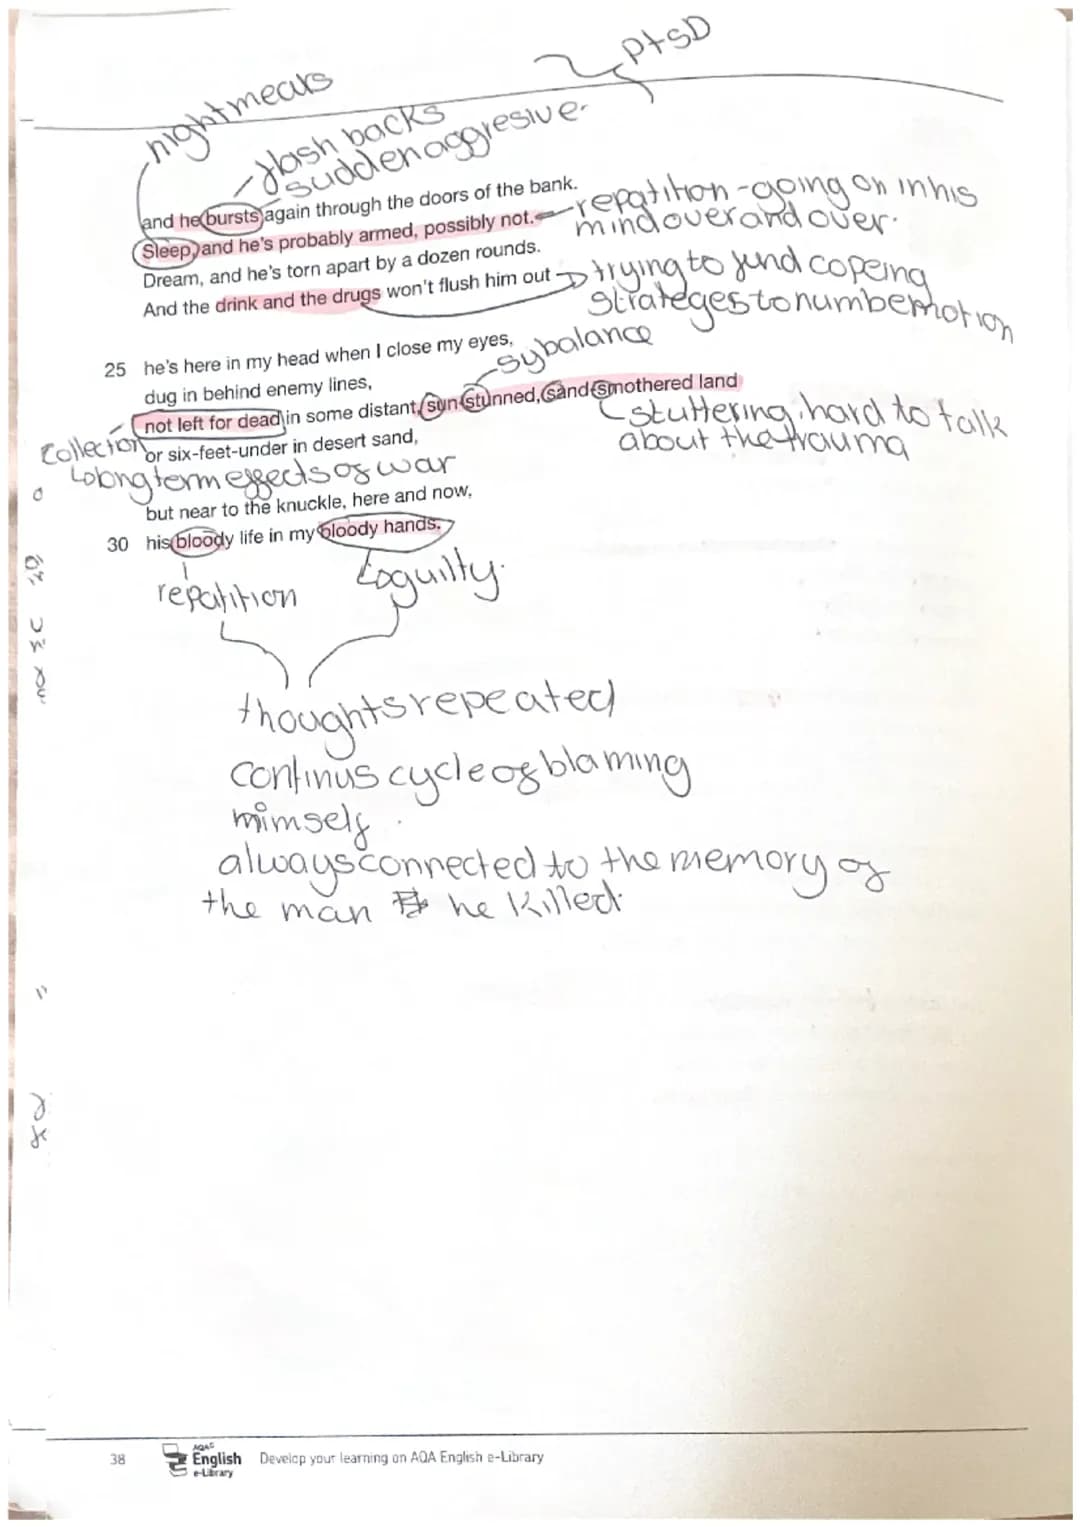 ptsD
nightmears
flash backs
sudden aggresive
and he bursts again through the doors of the bank.
Sleep, and he's probably armed, possibly not.
repatition - going on in his
mind over and over.
Dream, and he's torn apart by a dozen rounds.
And the drink and the drugs won't flush him out
trying to find copeing
strateges to numb emotion
25 he's here in my head when I close my eyes,
dug in behind enemy lines,
sybalance
not left for dead in some distant, sun-stunned, sand-smothered land
stuttering, hard to talk
about the trauma
or six-feet-under in desert sand,
long term effects of war
but near to the knuckle, here and now,
30 his bloody life in my bloody hands.
repatition
guilty.
thoughts repeated
continus cycle of blaming
himself.
always connected to the memory of
the man he killed.
38
AQA
English
e-Library
Develop your learning on AQA English e-Library